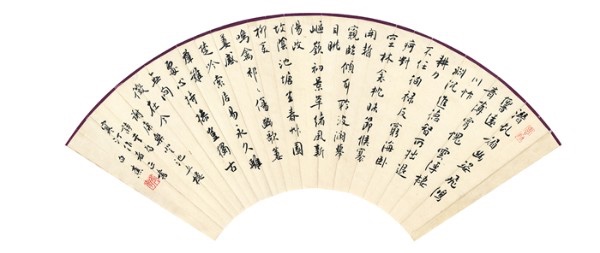 潛虬媚幽姿飛鴻
響遠音薄霄愧雲浮棲
川怍淵沉進德智所拙退
耕力不任徇祿反窮海臥
痾對空林衾枕昧節候褰
開暫窺臨傾耳聆波瀾舉
目眺嶇嶔初景革緒風新
陽改故陰池塘生春草園
柳變鳴禽祁祁傷豳歌萋
萋感楚吟索居易永久離
羣難處心持操豈獨古
無悶徵在今 登池上樓
白蕉